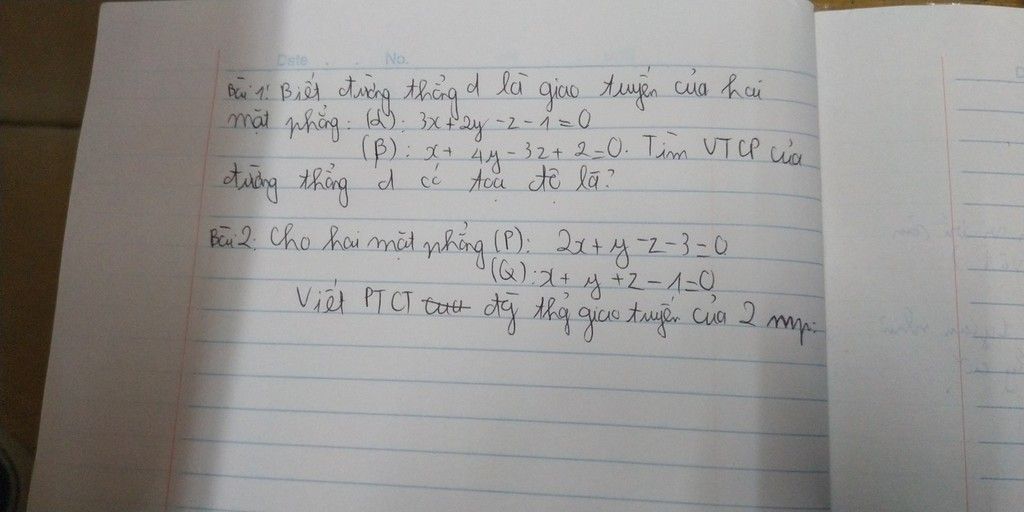 Date . . No.
Bài 1: Biết đường thẳng d là giao tuyến của hai
mặt phẳng: (α): 3x+2y-z-1=0
(β): x+ 4y-3z+2=0. Tìm VTCP của
đường thẳng d có tọa độ là?
Bài 2: Cho hai mặt phẳng (P): 2x+y-z-3=0
(Q): x+ y+z-1=0
Viết PTCT đg thg giao tuyến của 2 mp: